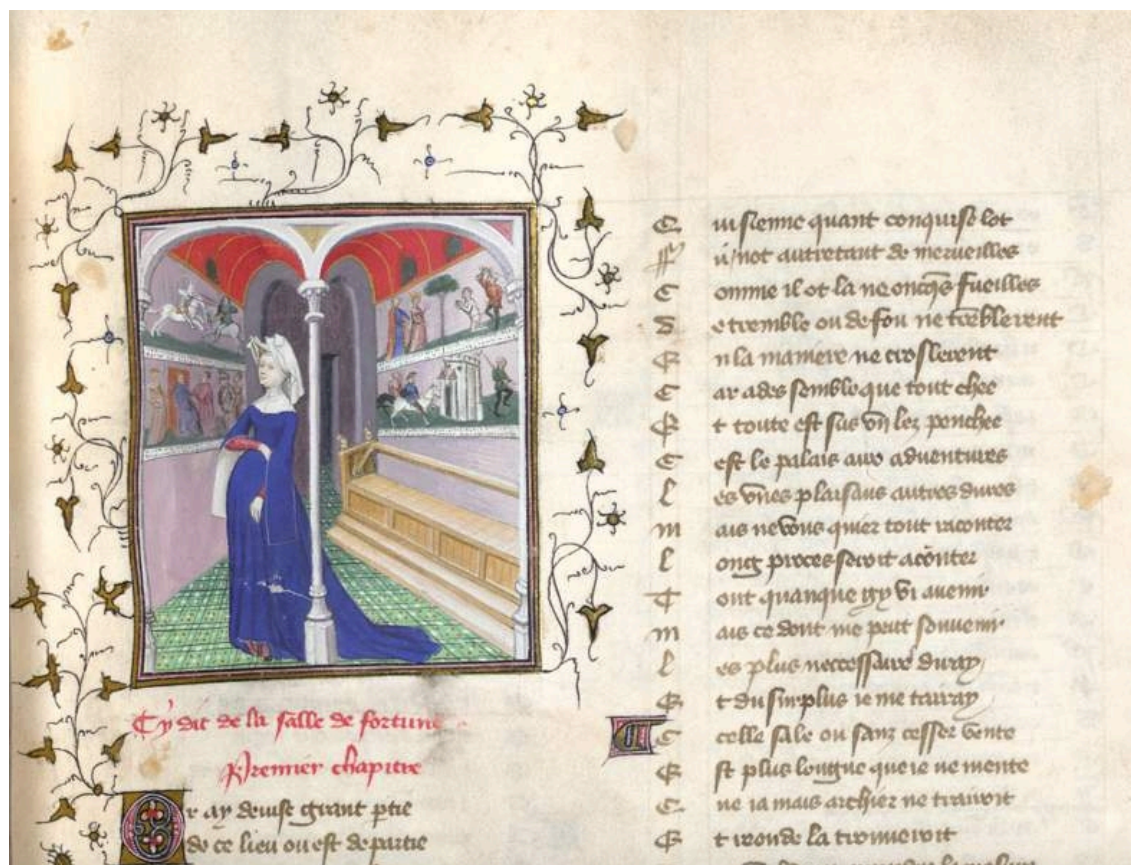 Cy dit de la salle de fortune
Premier chapitre
Or ay devise grant ptie
de ce lieu ou est departie
C uisienne quant conquise lot
ny not autretant de merveilles
C omme il ot la ne oncqs fueilles
D e tremble ou de fou ne treblerent
E n la maniere ne croslerent
C ar ades semble que tout chee
E t toute est sus vn lez penchee
C est le palais aux aduentures
L es vnes plaisans autres dures
M ais ne vous quier tout raconter
L ong proces seroit aconter
T out quanque gy vi auenir
M ais ce dont me peut souuenir
L es plus neccessaire diray
E t du surplus ie me tairay
A celle sale ou sanz cesser vente
E st plus longue que ie ne mente
C ne ia mais archier ne trairoit
E t ronde la trouueroit